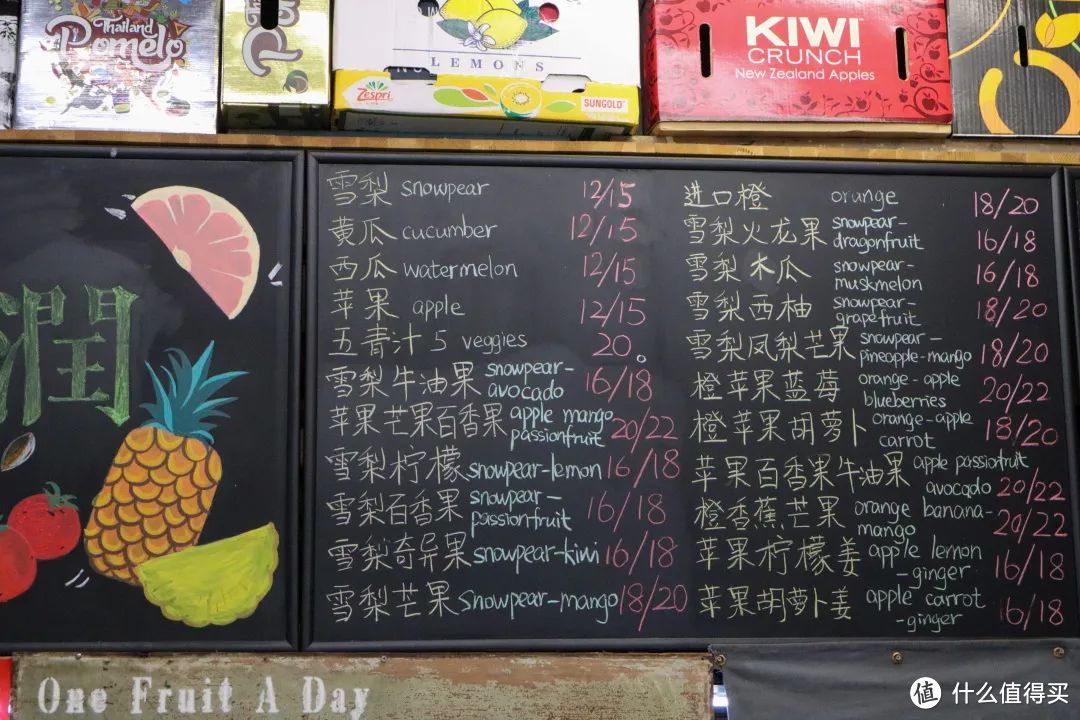 Thailand
Pomelo
LEMONS
Zespri
SUNGOLD
KIWI
CRUNCH
New Zealand Apples
潤
雪梨 snowpear 12/15
黄瓜 cucumber 12/15
西瓜 watermelon 12/15
苹果 apple 12/15
五青汁 5 veggies 20。
雪梨牛油果 snowpear-
avocado 16/18
苹果芒果百香果 apple mango
passionfruit 20/22
雪梨柠檬 snowpear-lemon 16/18
雪梨百香果 snowpear-
passionfruit 16/18
雪梨奇异果 snowpear-kiwi 16/18
雪梨芒果 snowpear-mango 18/20
进口橙 orange 18/20
雪梨火龙果 snowpear-
dragonfruit 16/18
雪梨木瓜 snowpear-
muskmelon 16/18
雪梨西柚 snowpear-
grapefruit 18/20
雪梨凤梨芒果 snowpear-
pineopple-mango 18/20
橙苹果蓝莓 orange-apple
blueberries 20/22
橙苹果胡萝卜 orange-apple
carrot 18/20
苹果百香果牛油果 apple passiofruit
avocado 20/22
橙香蕉芒果 orange banana-
mango 20/22
苹果柠檬姜 apple lemon
-ginger 16/18
苹果胡萝卜姜 apple carrot
-ginger 16/18
One Fruit A Day
值 什么值得买